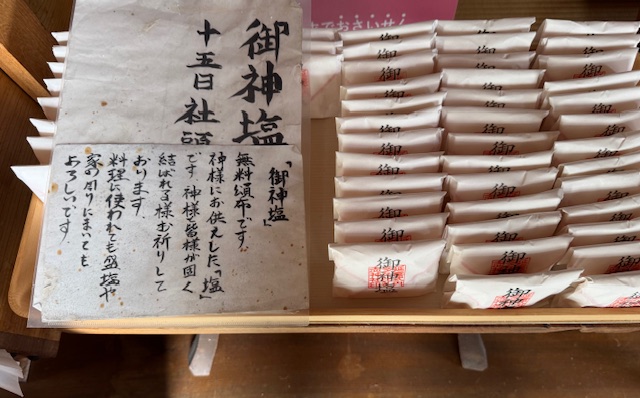 でおさいせ
御神塩
十五日社頭
「御神塩」
無料頒布です。
神様にお供えした「塩」
です 神様と皆様が固く
結ばれる様お祈りして
おります
料理に使われても盛塩や
家の周りにまいても
よろしいです。
御神塩
御神塩